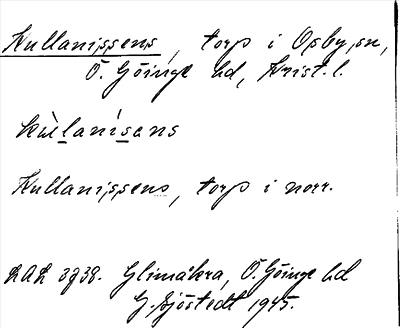 Kullanissens, torp i Osby sn,
Ö. Göinge hd, Krist. l.
kùlanísens
Kullanissens, torp i norr.
LAL 3738. Glimåkra, Ö. Göinge hd
G. Sjöstedt 1945.